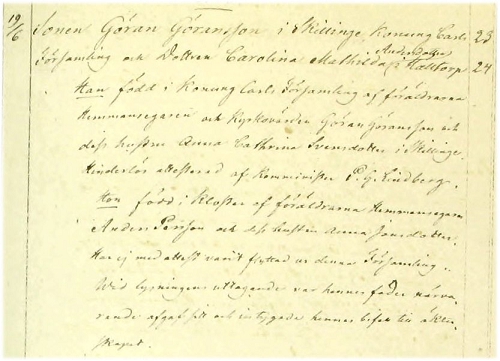 19/6 Sonen Göran Göransson i Skillinge, Konung Carls 23
Församling och Dottren Carolina Mathilda Andersdotter i Kalltorp 24
Han född i Konung Carls Församling af föräldrarna
Hemmansegaren och Kyrkovärden Göran Göransson och
dess hustru Anna Cathrina Svensdotter i Skillinge.
Hinderlös attesterad af Komminister P. G. Lindberg.
Hon född i Kloster af föräldrarna Hemmansegaren
Anders Persson och dess hustru Anna Jonsdotter.
Har ej med attest varit flyttad ur denna Församling.
Wid lysningens uttagande var hennes fader närva-
rande afgaf sitt och intygade hennes bifall till äkten-
skapet.